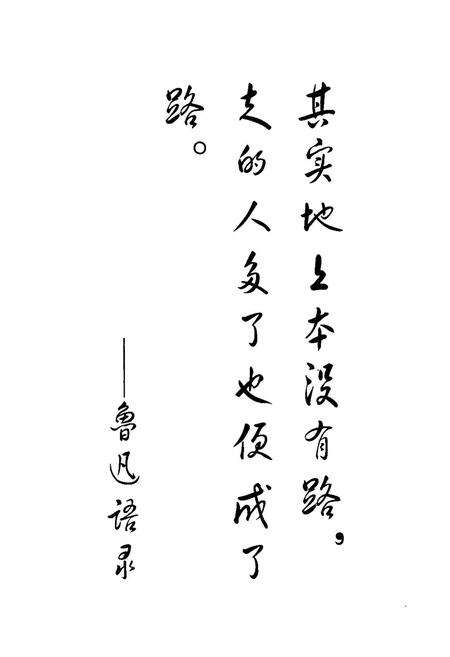 其实地上本没有路，
走的人多了也便成了
路。
——鲁迅语录